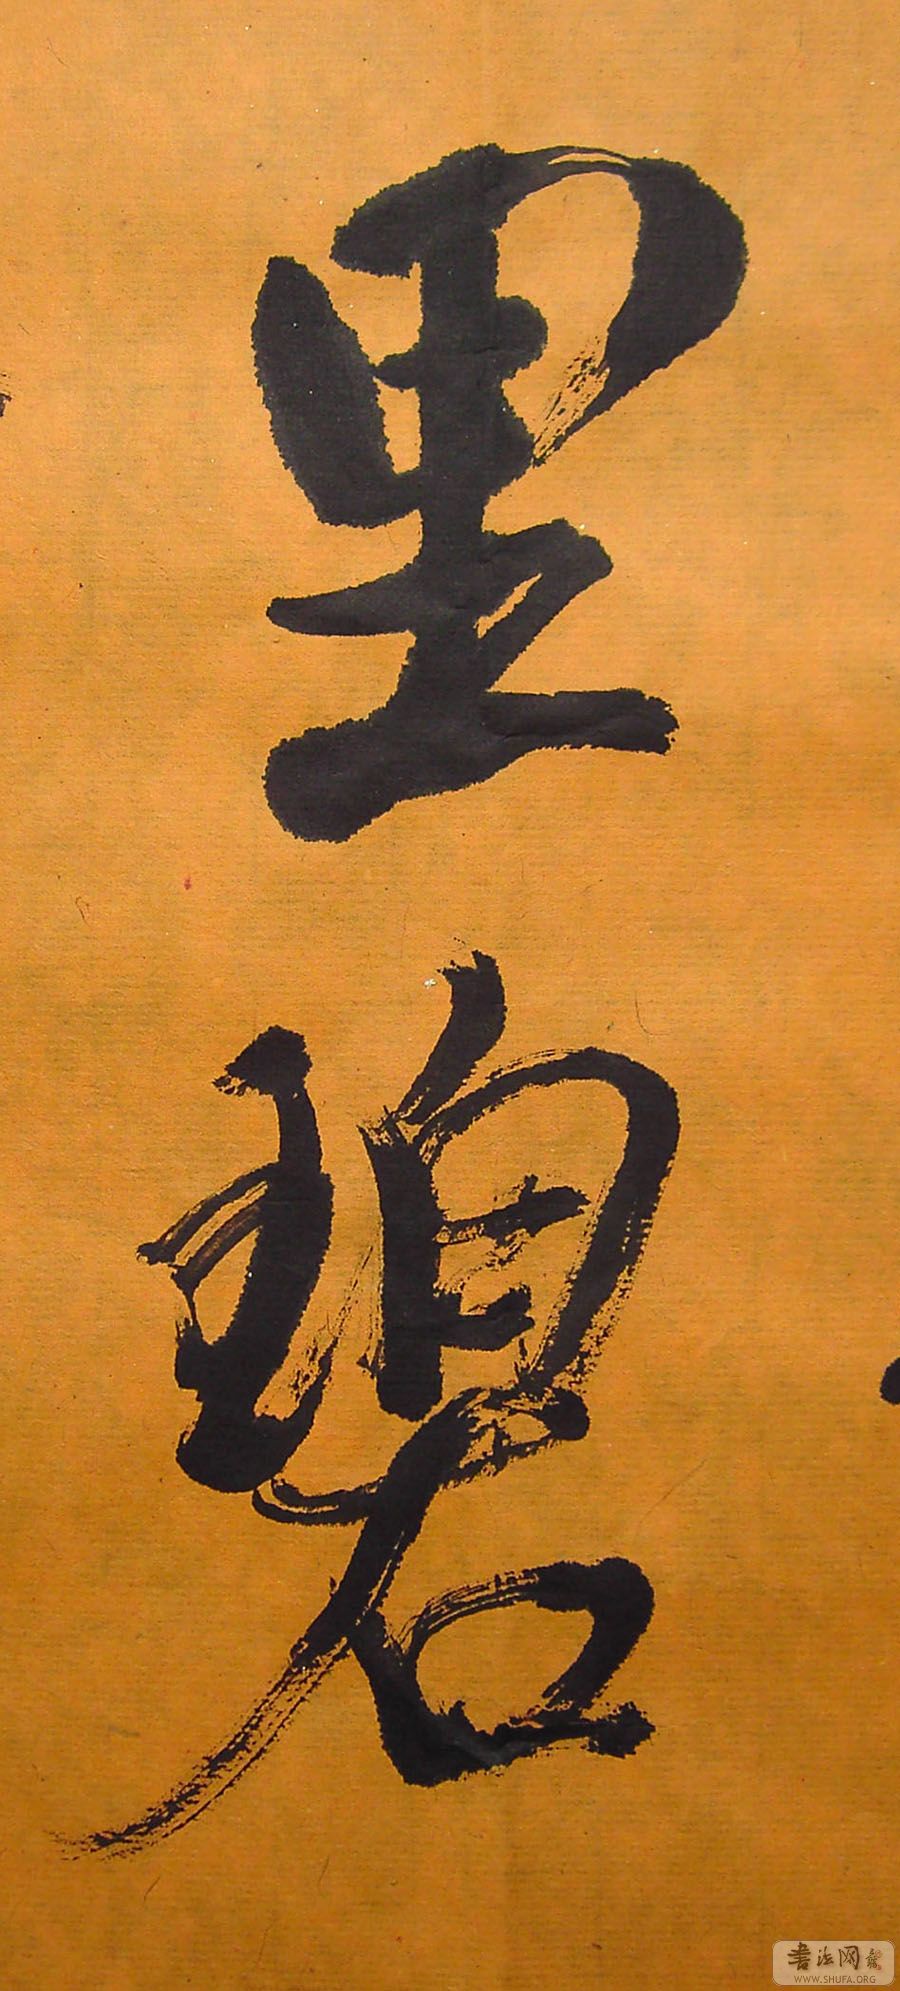 里碧
書法网
WWW.SHUFA.ORG